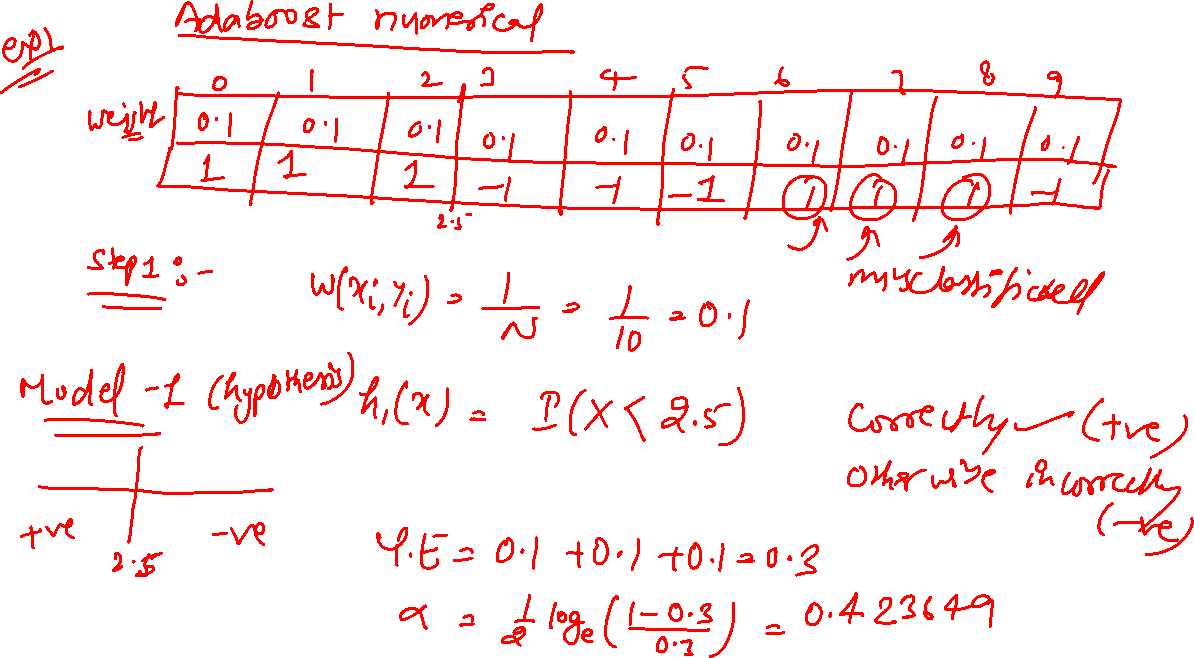 Adaboost numerical
exp1
0 1 2 3 4 5 6 7 8 9
weight 0.1 0.1 0.1 0.1 0.1 0.1 0.1 0.1 0.1 0.1
1 1 1 -1 -1 -1 1 1 1 -1
2.5
misclassificated
Step 1 :-
w(xi, yi) = 1/N = 1/10 = 0.1
Model -1 (hypothesis) h1(x) = I(X < 2.5)
correctly (+ve)
otherwise incorrectly (-ve)
+ve 2.5 -ve
= 0.1 + 0.1 + 0.1 = 0.3
α = 1/2 loge (1-0.3/0.3) = 0.423649